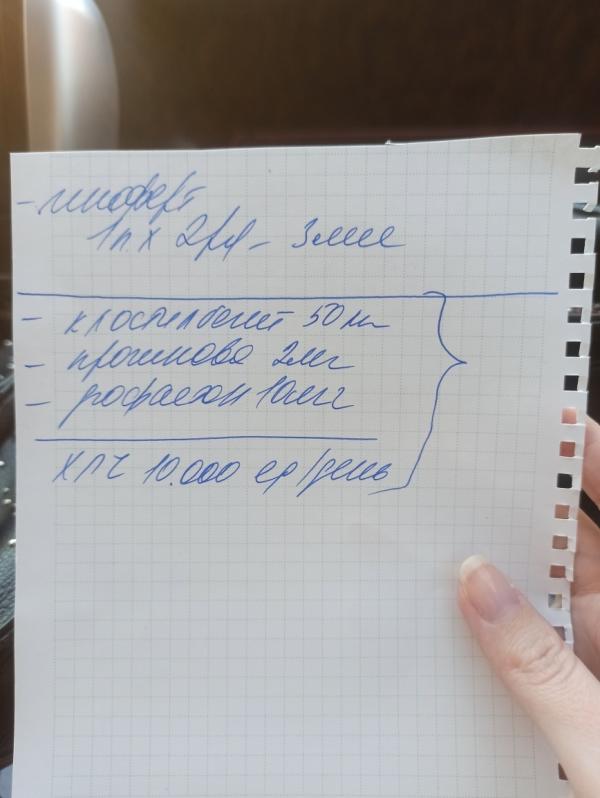 - иноферт
1п. х 2р/д - 3мес
- клостилбегит 50мг
- прогинова 2мг
- дюфастон 10мг
ХГЧ 10.000 ед/день